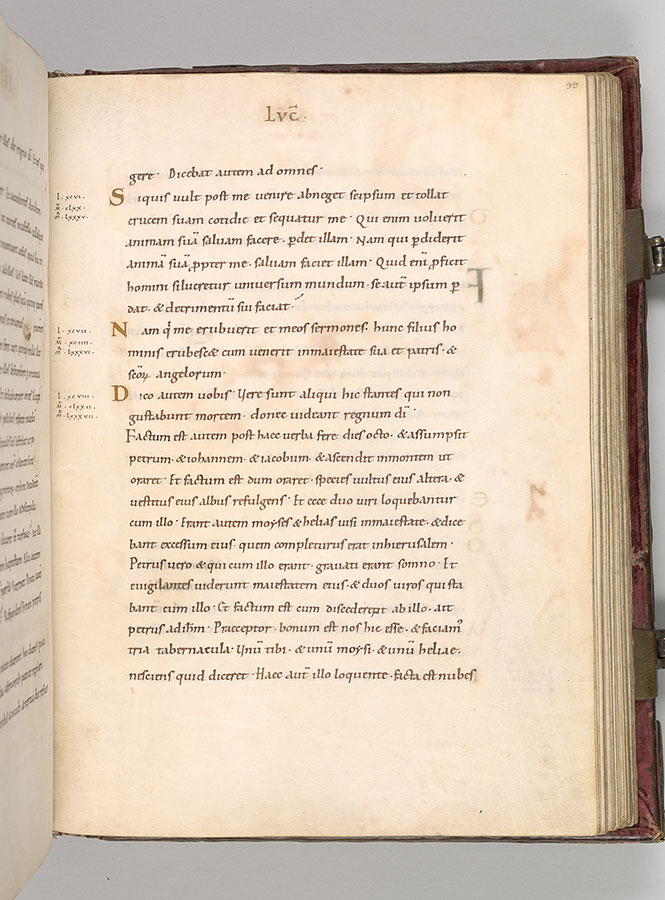 99
Lvc̄·
gere· Dicebat autem ad omnes·
Siquis vult post me venire abneget seipsum et tollat
crucem suam cotidie et sequatur me· Qui enim voluerit
animam suā salvam facere· ꝑdet illam· Nam qui ꝑdiderit
animā suā ꝓpter me· salvam faciet illam· Quid enī ꝓficit
homini si lucretur universum mundum· se aut̄ ipsum ꝑ
dat· & detrimentū sui faciat·
Nam q̇ me erubuerit et meos sermones· hunc filius ho
minis erubesc& cum venerit in maiestate sua et patris· &
sc̄oꝝ angelorum·
Dico autem vobis· Vere sunt aliqui hic stantes qui non
gustabunt mortem· donec videant regnum dī·
Factum est autem post haec verba fere dies octo· & assumpsit
petrum· & iohannem· & iacobum· & ascendit in montem ut
oraret· Et factum est dum oraret· species vultus eius altera· &
vestitus eius albus refulgens· Et ecce duo viri loquebantur
cum illo· Erant autem moyses & helias visi in maiestate· & dice
bant excessum eius· quem completurus erat in hierusalem·
Petrus vero & qui cum illo erant· gravati erant somno· Et
evigilantes viderunt maiestatem eius· & duos viros qui sta
bant cum illo· Et factum est cum discederent ab illo· ait
petrus ad ihm̄· Praeceptor· bonum est nos hic esse· & faciam᷒
tria tabernacula· Vnū tibi· & unū moysi· & unū heliae·
nesciens quid diceret· Haec aut̄ illo loquente· facta est nubes
L· xcvi·
m̄· clxx·
m̄· lxxxv·
L· xcvii·
m̄· lxxxvi·
L· xcviii·
m̄· clxxii·
m̄· lxxxvii·